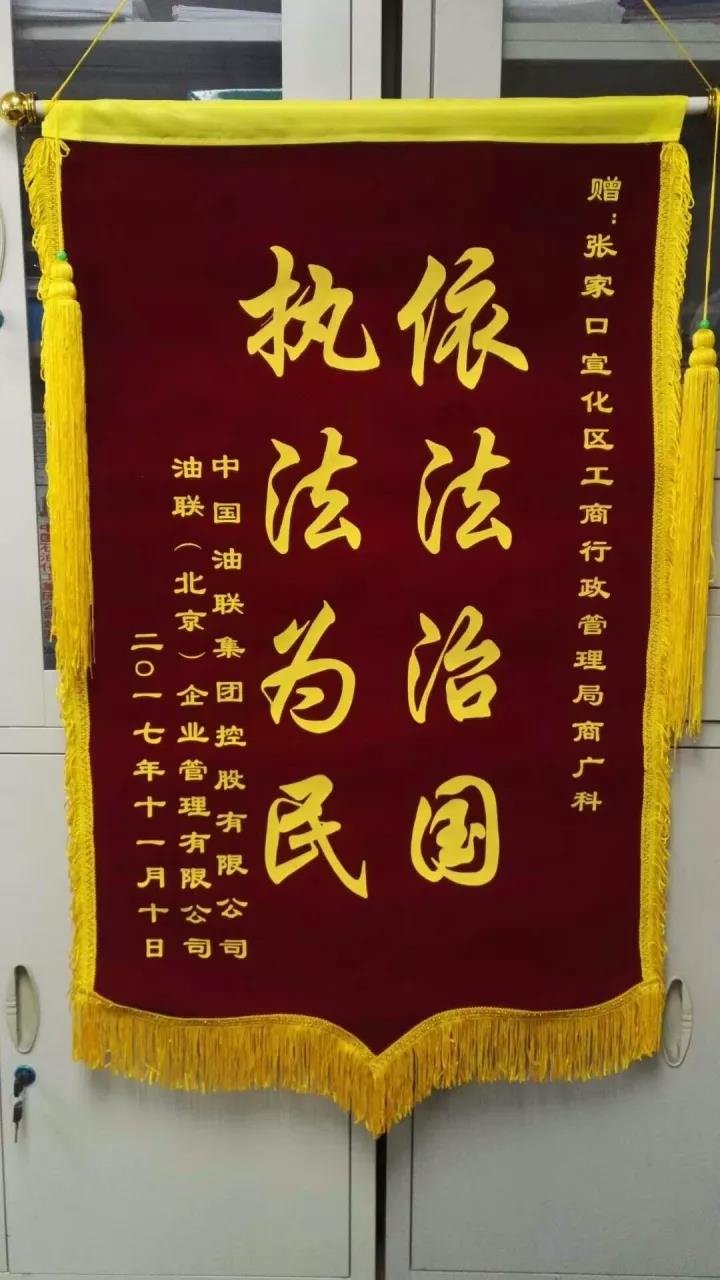 赠：张家口宣化区工商行政管理局商广科
依法治国
执法为民
中国油联集团控股有限公司
油联（北京）企业管理有限公司
二〇一七年十一月十日